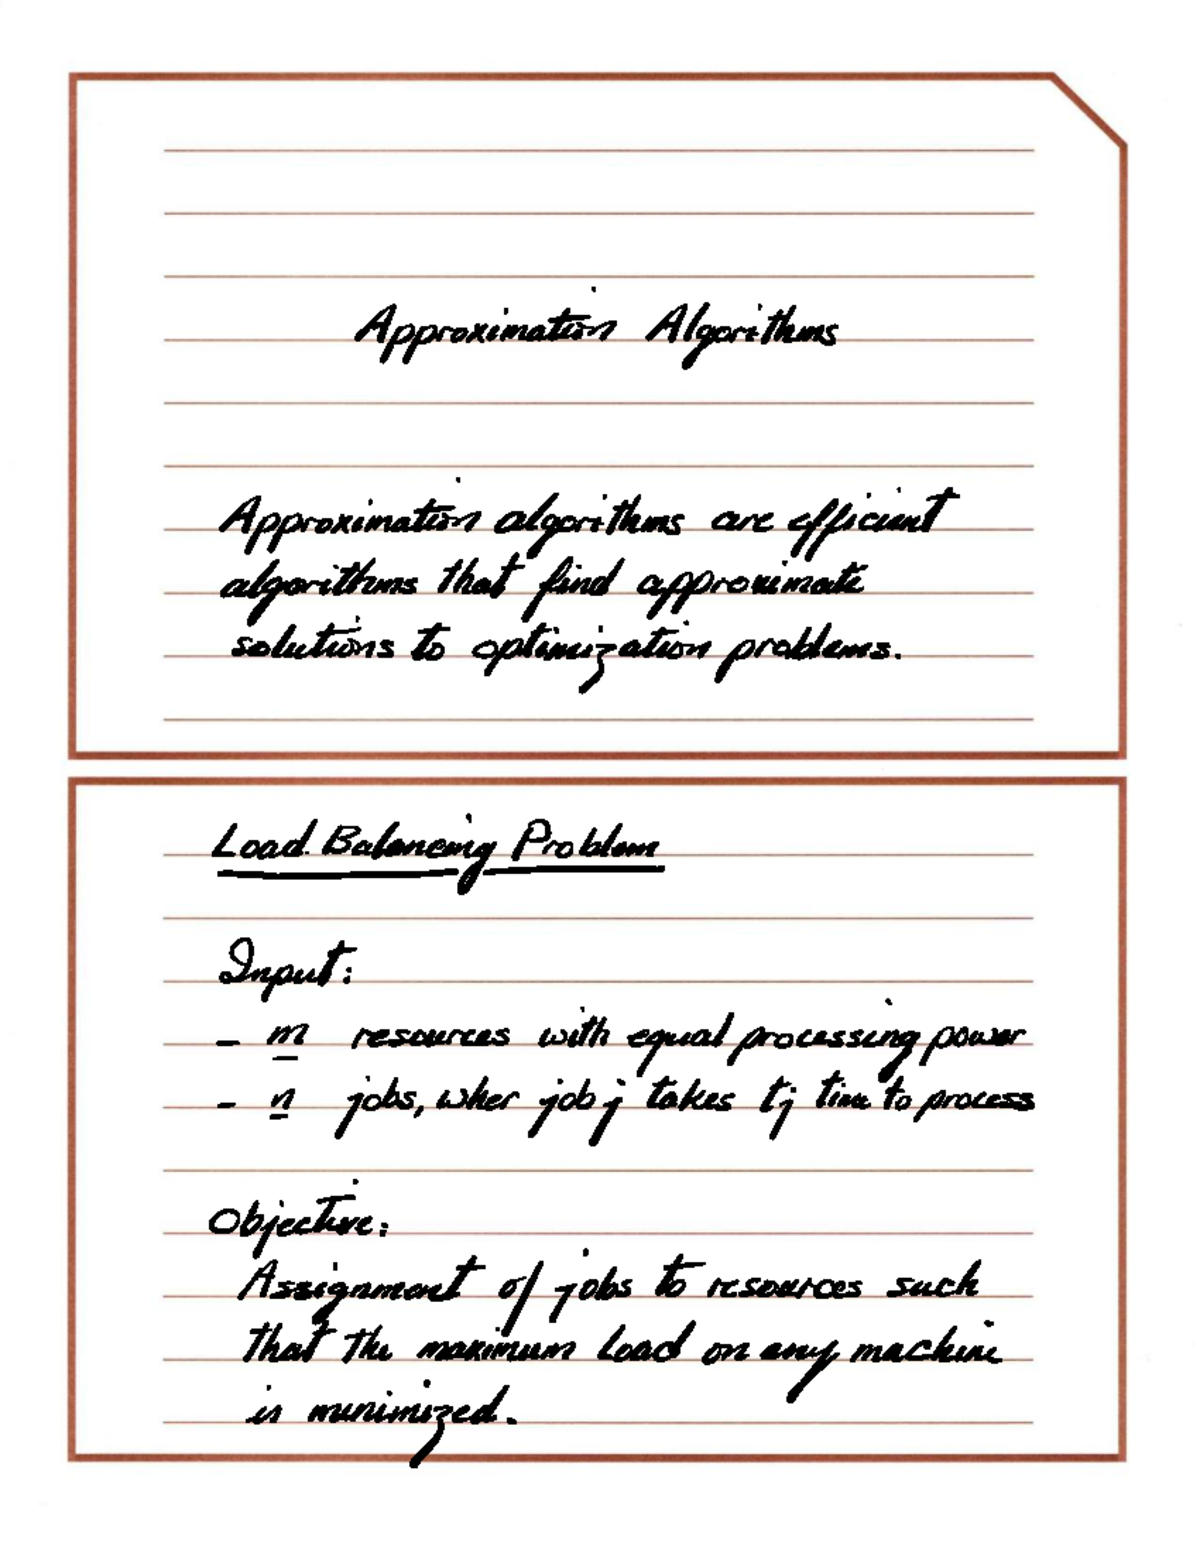 Approximation Algorithms
Approximation algorithms are efficient
algorithms that find approximate
solutions to optimization problems.
Load Balancing Problem
Input:
- m resources with equal processing power
- n jobs, wher job j takes tj time to process
Objective:
Assignment of jobs to resources such
that the maximum load on any machine
is minimized.